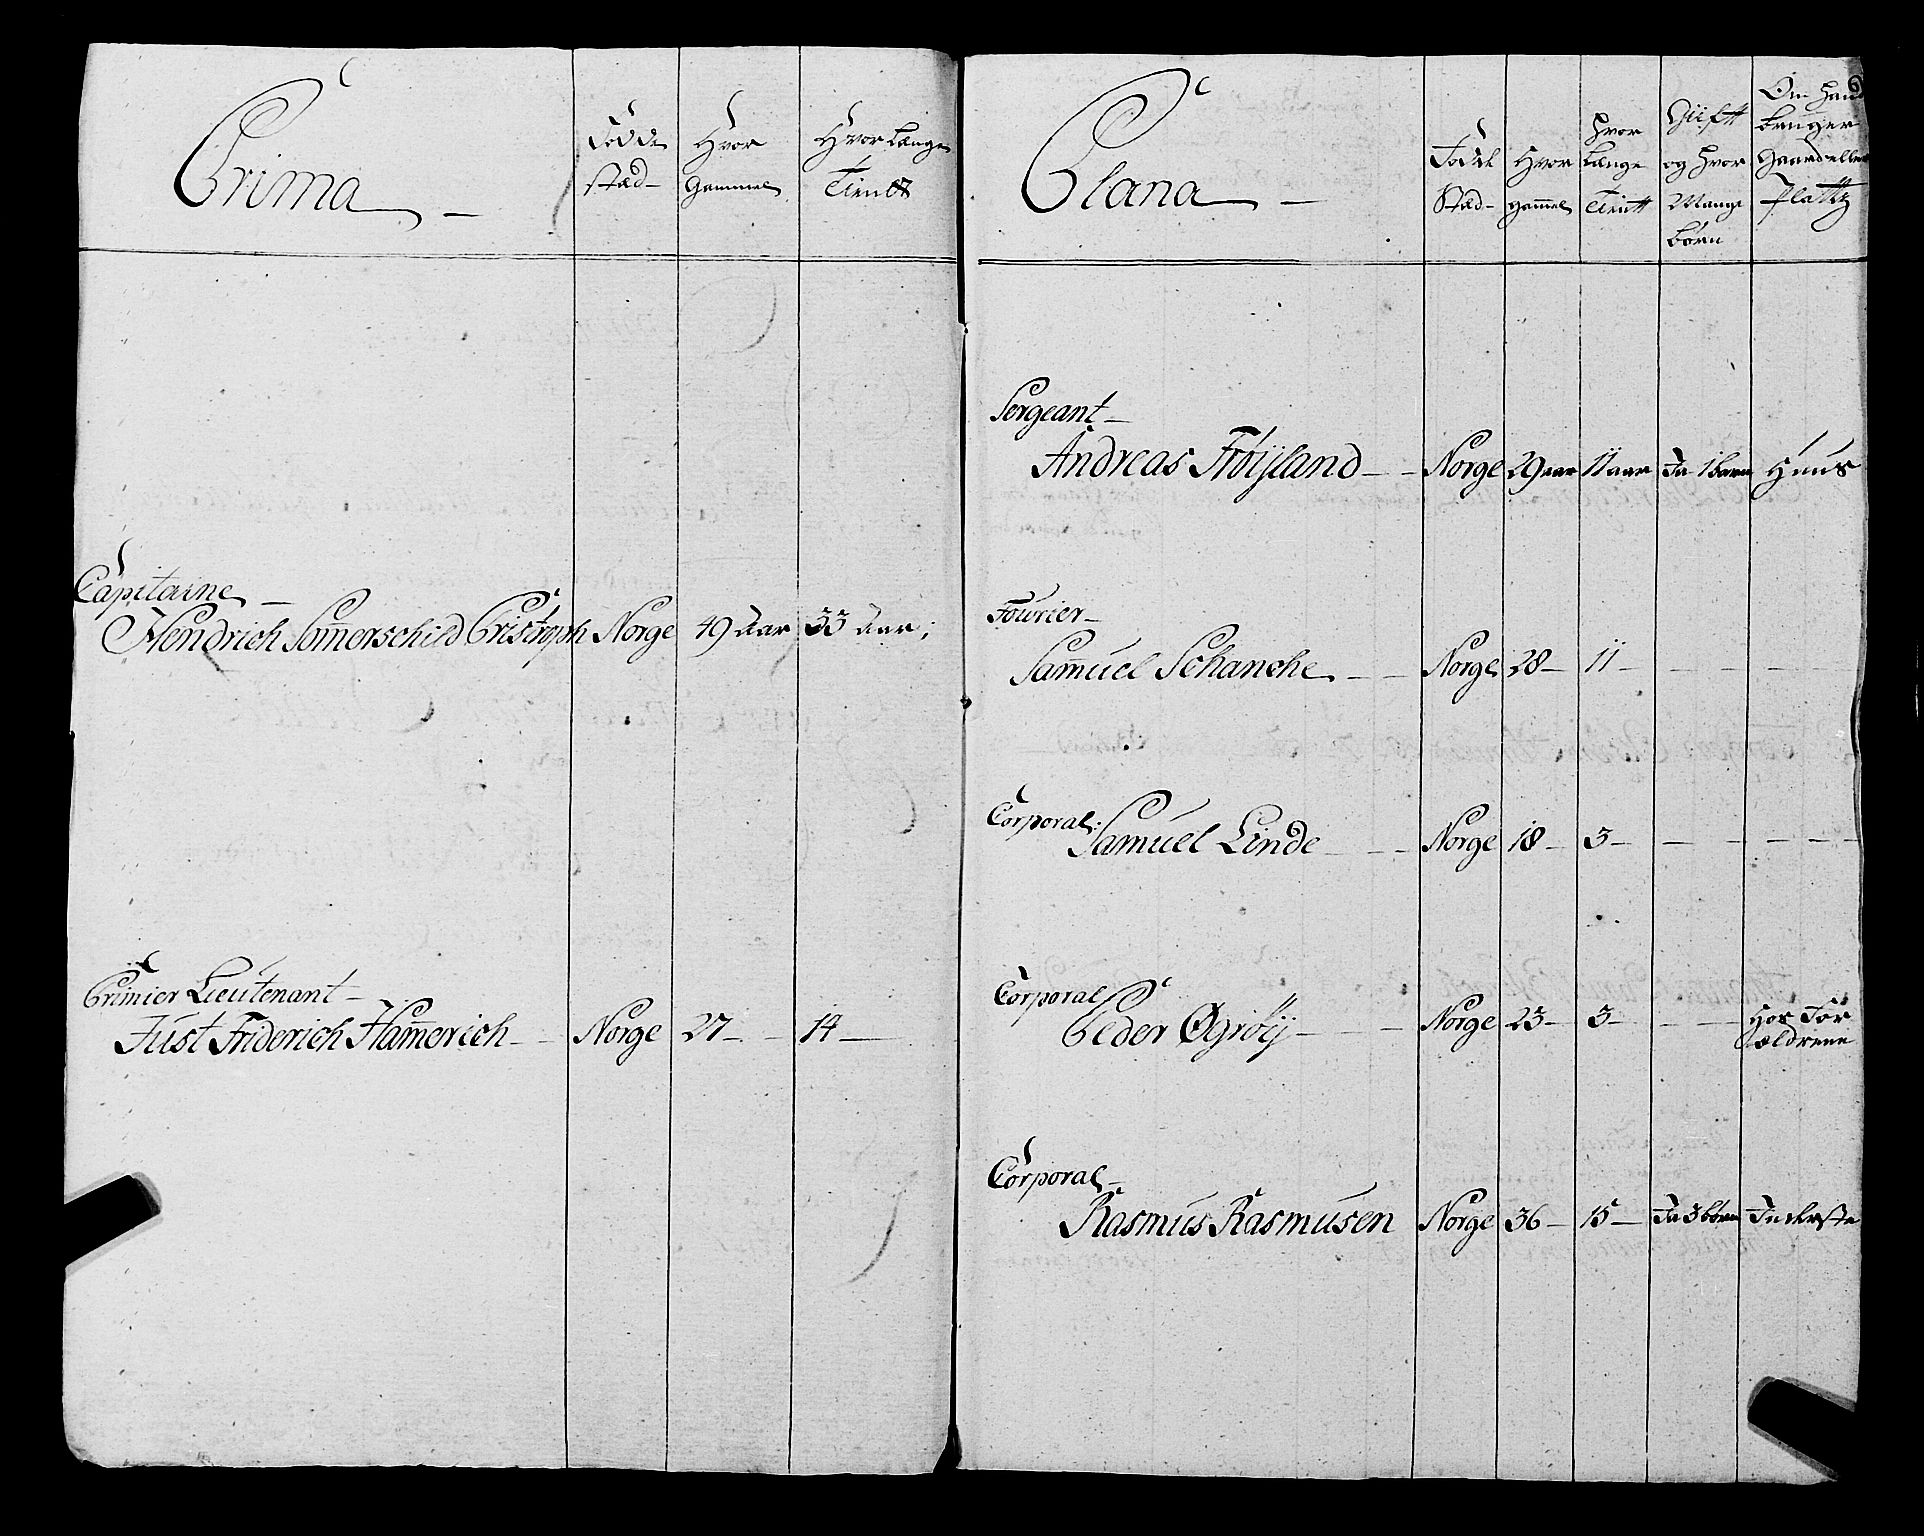 Prima
Fødde stæd
Hvor Gammel
Hvor Længe Tient
Capitaine
Hendrich Som̄erschild Cristroph Norge 49 Aar 33 Aar;
Primier Lieutenant
Just Friderich Ham̄erich Norge 27 14
Plana
Fødde Stæd
Hvor gam̄el
Hvor Længe Tient
Gift og Hvor Mange børn
Om Hand bruger Gaard eller Platts
Sergeant
Andreas Frøijsland Norge 29 aar 11 aar Ja 1 barn Huus
Fourier
Sam̄uel Schanche Norge 28 11
Corporal:
Samuel Linde Norge 18 3
Corporal
Peder Øgrøij Norge 23 3 Hos For
ældrene
Corporal
Rasmus Rasmusen Norge 36 15 Ja 3 børn Inderste